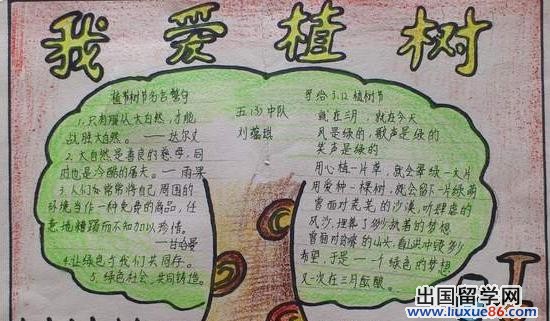 我爱植树
植树节名言警句
1.只有顺从大自然,才能
战胜大自然。——达尔文
2.大自然是善良的慈母,同
时也是冷酷的屠夫。——雨果
3.人们常常将自己周围的
环境当作一种免费的商品,任
意地糟蹋而不知加以珍惜。
——甘哈曼
4.让绿色与我们共同存。
5.绿色社会,共同铸造。
五(3)中队
写给3.12植树节
就在三月,就在今天
风是绿的,歌声是绿的
笑声是绿的
用心植一片草,就会翠绿一大片
用爱种一棵树,就会留下一片绿荫
曾面对荒芜的沙漠,听肆虐的
风沙,埋葬了多少执着的梦想
曾面对的山头,看洪冲毁多少
希望,于是一个绿色的梦想
又一次在三月酝酿。
出国留学网
www.liuxue86.com